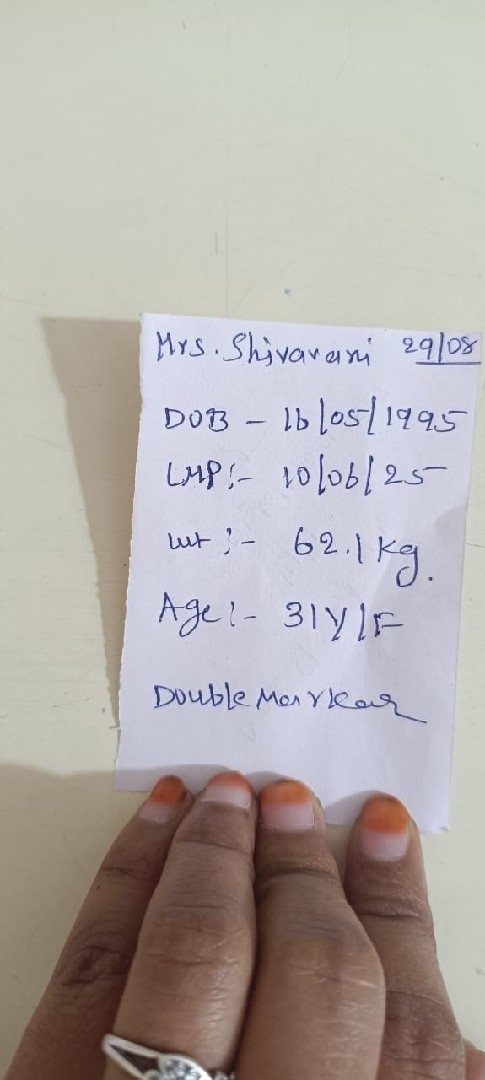 Mrs. Shivarani 29/08
DOB - 16/05/1995
LMP :- 10/06/25
wt :- 62.1 kg.
Age :- 31Y/F
Double Marker